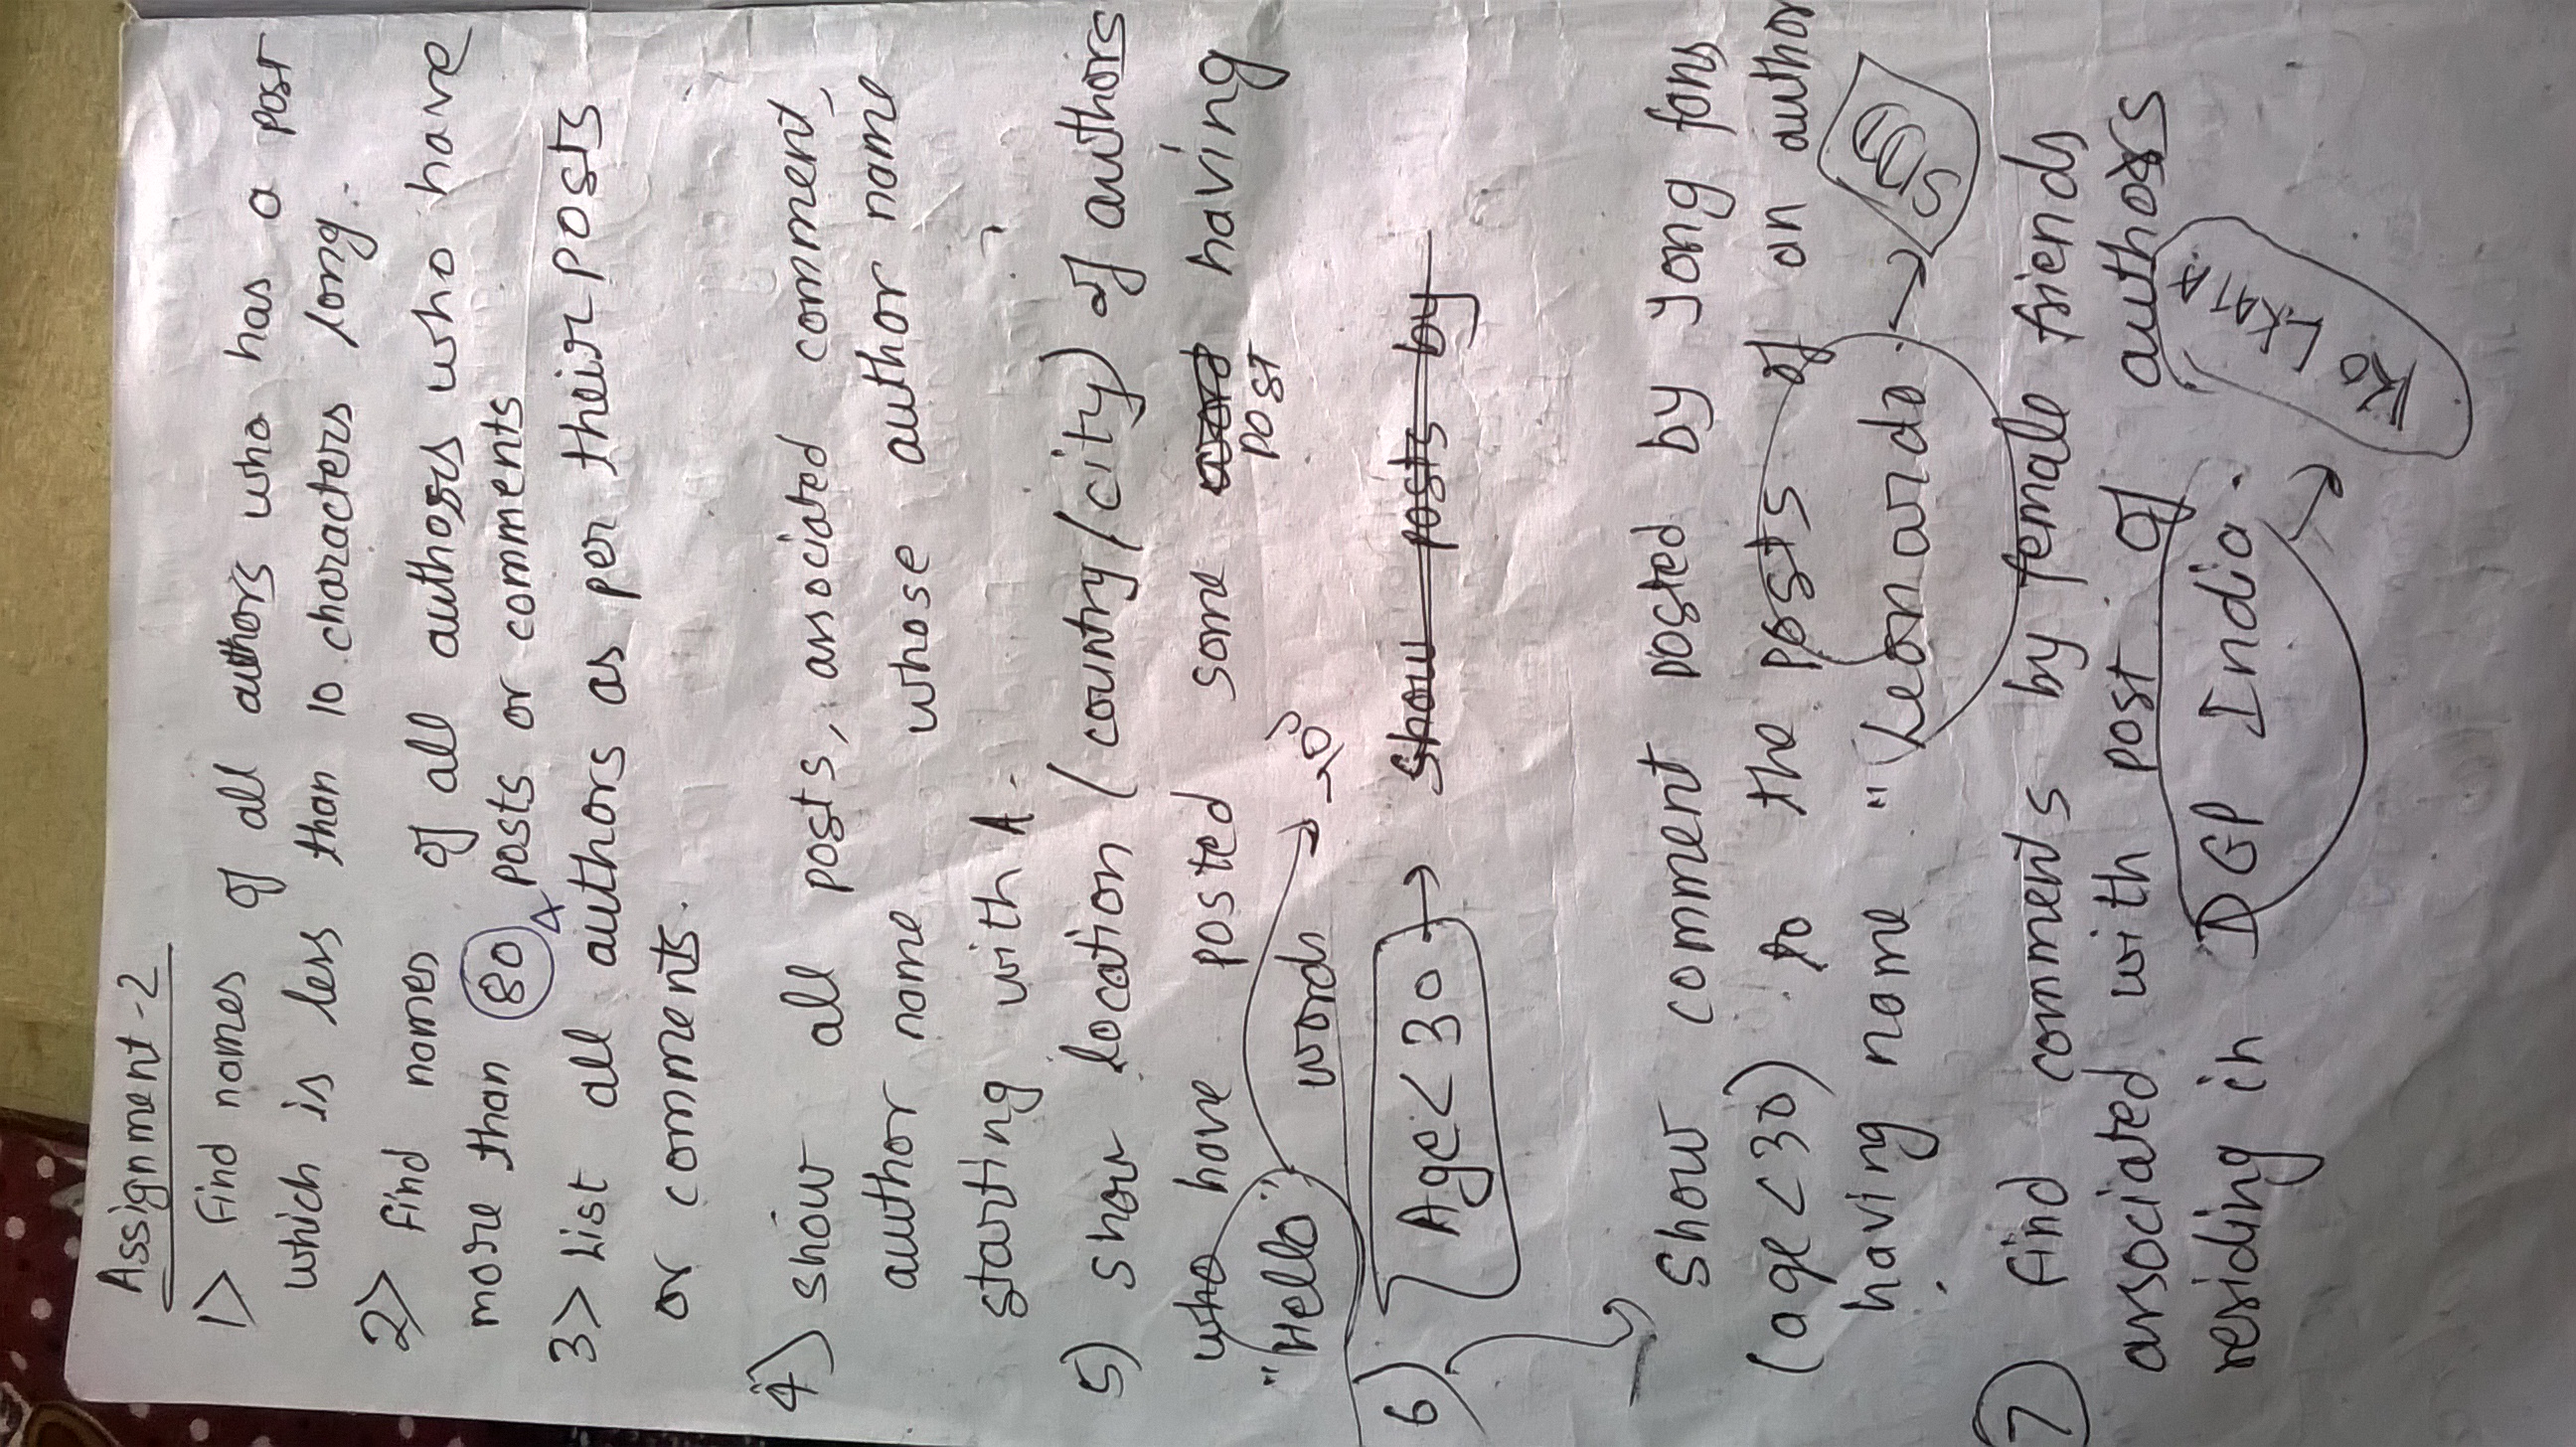 Assignment-2
1> Find names of all authors who has a post
which is less than 10 characters long.
2> Find names of all authors who have
more than 80 posts or comments
3> List all authors as per their posts
or comments.
4) show all posts, associated comment,
author name whose author name
starting with A.
5) show location (country/city) of authors
who have posted some word having
post
"Hello" words
6) Age<30 → show posts by
show comment posted by yong fans
(age<30) to the posts of an author
having name "Leonardo.
7) Find comments by female friends
associated with post of authors
residing in DGP India.
KOLKATA